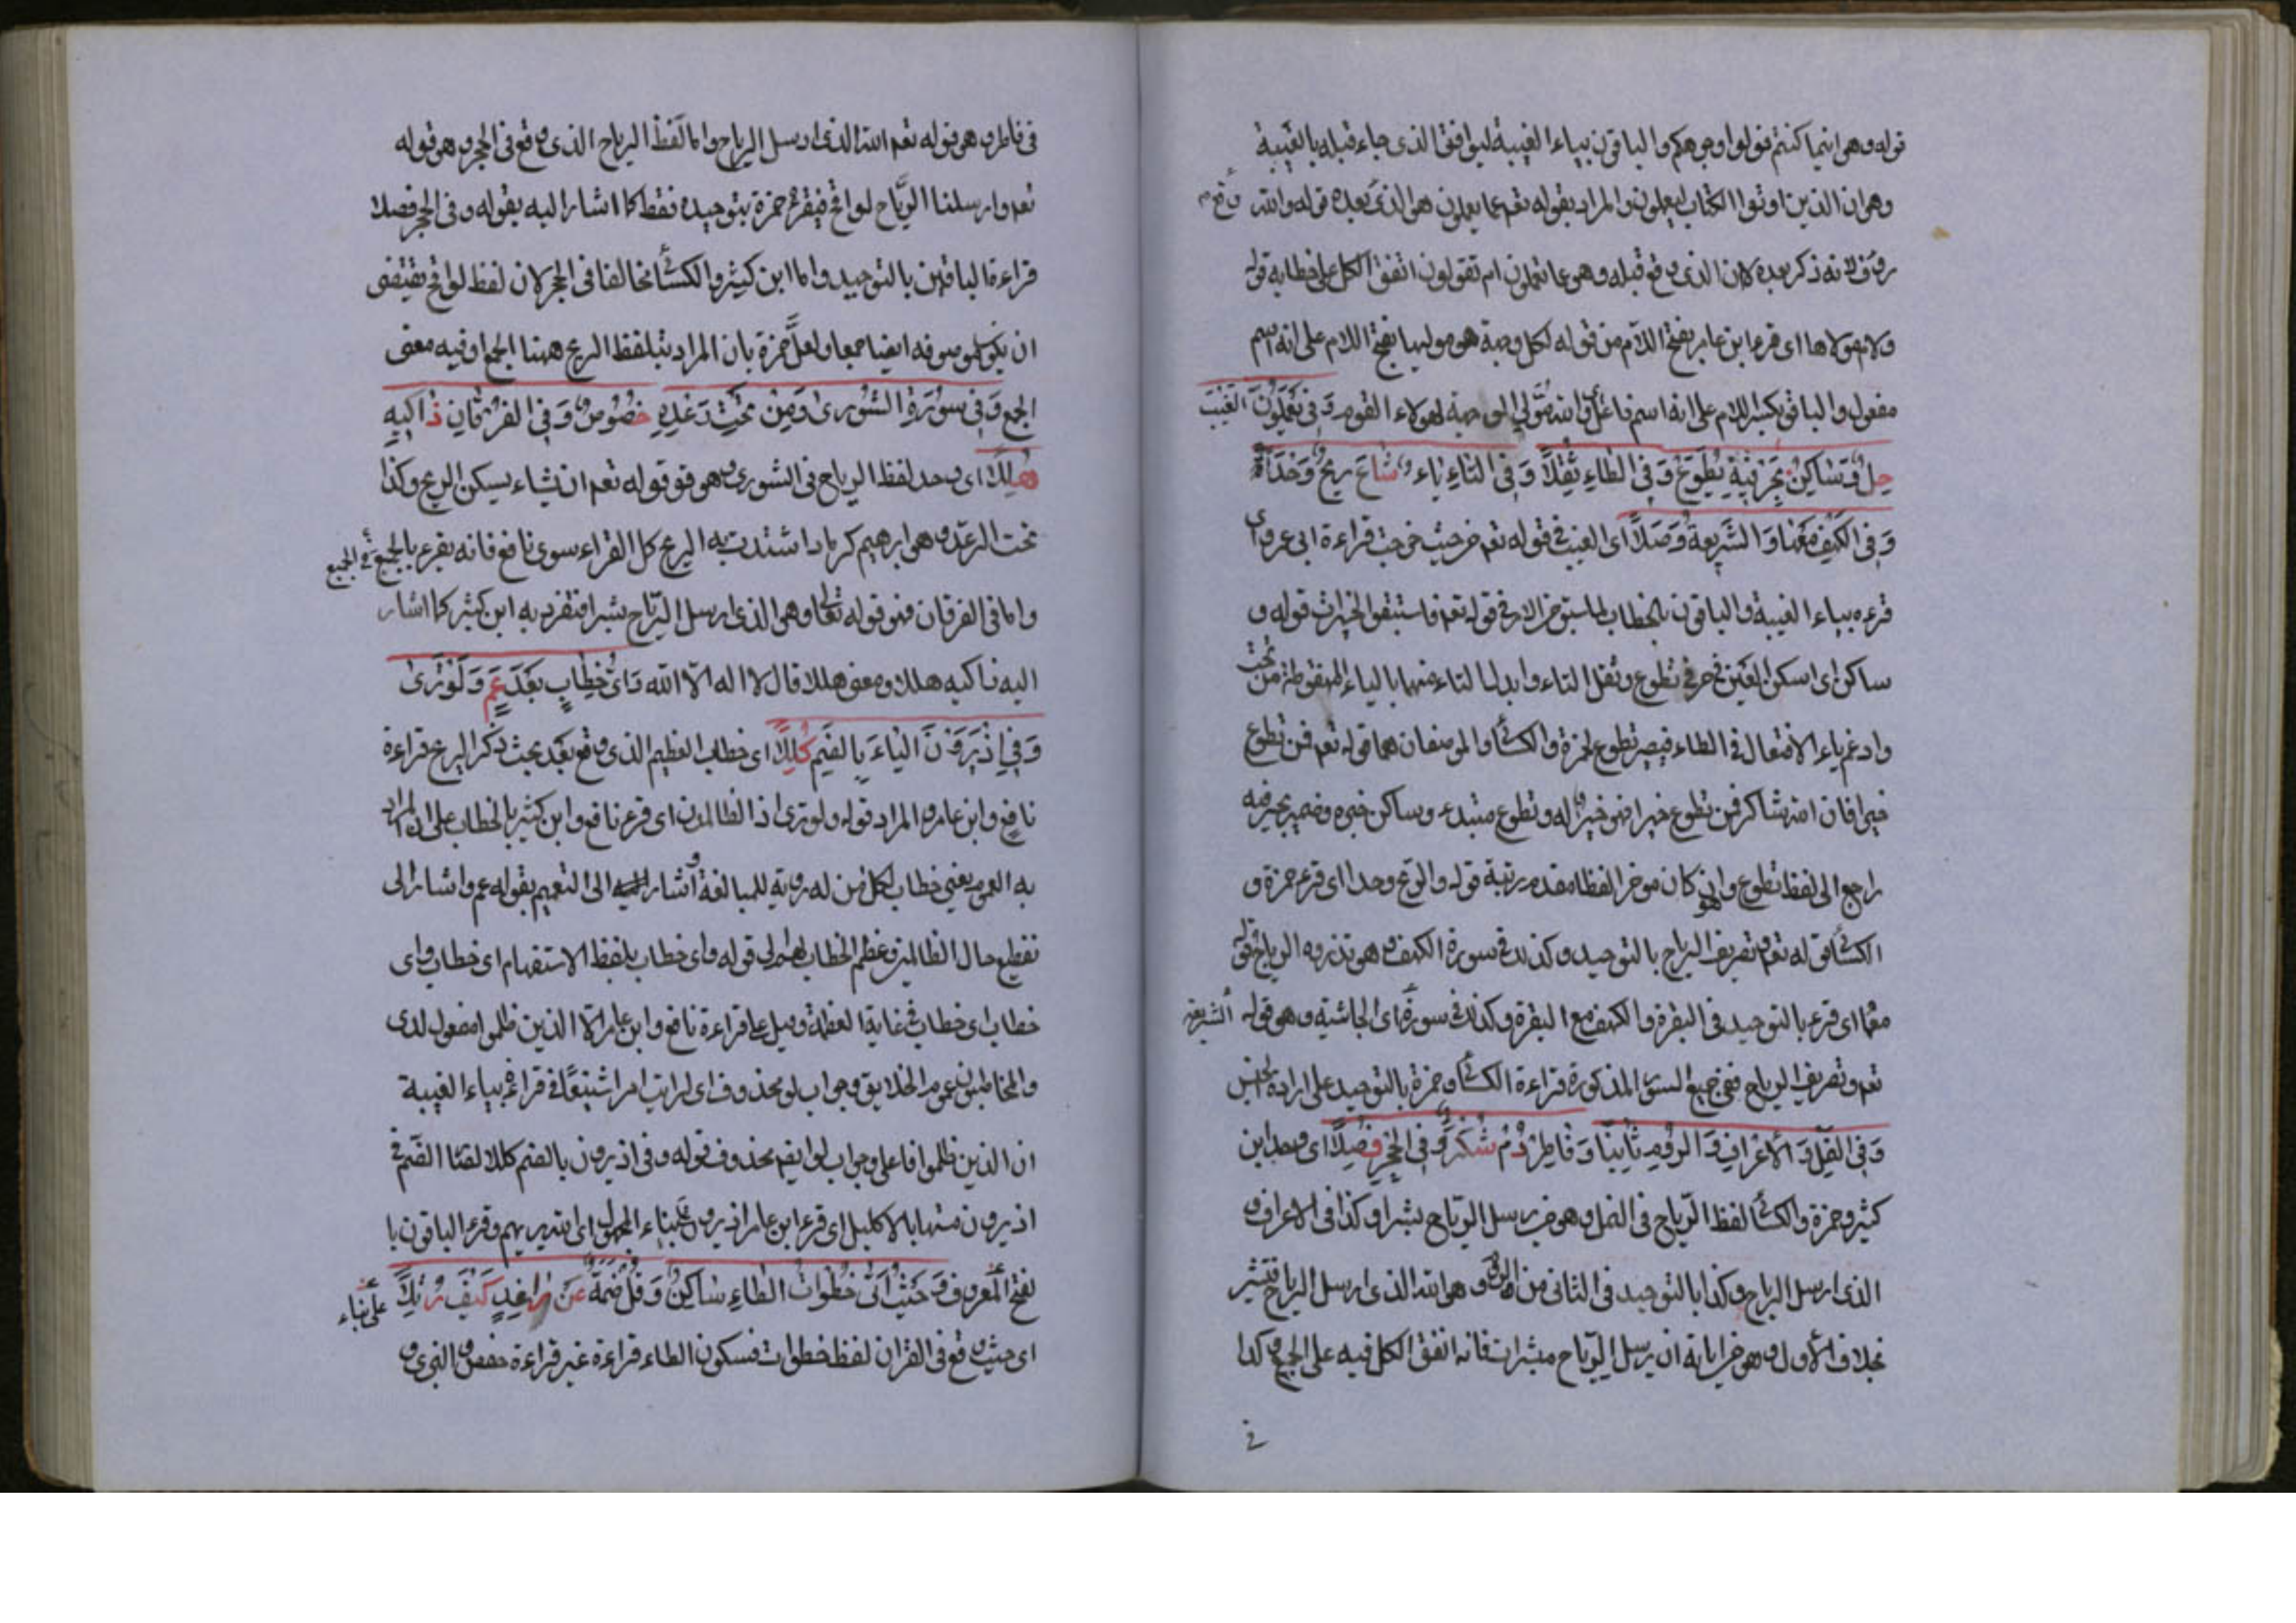 قوله وهو اينما كنتم فولوا وجوهكم والباقون بياء الغيبة ليوافق الذى جاء قبله بالغيبة
وهو ان الذين اوتوا الكتاب ليعلمون والمراد بقوله تعم عما يعملون هو الذى بعده قوله والله وقع
رؤف لانه ذكر بعده لان الذى وقع قبله وهو عما تعملون ام تقولون اتفق الكل على خطابه قوله
ولام مولاها اى قرء ابن عامر بفتح اللام من قوله لكل وجهة هو موليها بفتح اللام على انه اسم
مفعول والباقون بكسر اللام على انه اسم فاعل اى الله مولى الوجهة لهولاء القوم وَفِى تَعْمَلُونَ الغَيْبَ
حلَّ وَسَاكِنٌ بِحَرْفَيْهِ يَطَّوَّعْ وَفِى الطَاءِ ثُقِّلاَ وَفِى التَاءِ يَاء شَاعَ وَالرِيحَ وَحَّدَا
وَفِى الكَهْفِ مَعْهَا وَالشَرِيعَةِ وَصَّلاَ اى الغيب فى قوله تعم من حيث خرجت قراءة ابى عمرو اى
قرءه بياء الغيبة والباقون بالخطاب لما سبق من الامر فى قوله تعم فاستبقوا الخيرات قوله و
ساكن اى اسكن العين فى حرفى تطوع وثقل التاء وابدل التاء منهما بالياء المنقوطة من تحت
وادغم ياء الافتعال فى الطاء فيصير تطوع لحمزة والكسائ والموضعان هما قوله تعم فمن تطوع
خيرا فان الله شاكر فمن تطوع خيرا فهو خير له وتطوع مبتدء وساكن خبره وضمير بحرفيه
راجع الى لفظ تطوع وان كان موخرا لفظا مقدم رتبة قوله والريح وحدا اى قرء حمزة و
الكسائ قوله تعم وتصريف الرياح بالتوحيد وكذلك فى سورة الكهف وهو تذروه الرياح قوله
معها اى قرء بالتوحيد فى البقرة والكهف مع البقرة وكذلك فى سورة اى الجاثية وهو قوله الشريعة
تعم وتصريف الرياح ففى جميع السور المذكورة قراءة الكسائ وحمزة بالتوحيد على ارادة الجنس
وَفِى النَمْلِ وَالأَعْرَافِ وَالرُومِ ثَانِيًا وَفَاطِرِ دُمْ شُكْرًا وَفِى الحِجْرِ فُصِّلاَ اى وحد ابن
كثير وحمزة والكسائ لفظ الرياح فى النمل وهو من يرسل الرياح بشرا وكذا فى الاعراف و
الذى ارسل الرياح وكذا بالتوحيد فى الثانى من الروم وهو الله الذى ارسل الرياح فتثير
بخلاف الاول وهو من اياته ان يرسل الرياح مبشرات فانه اتفق الكل فيه على الجمع وكذا
فى
فى فاطر وهو قوله تعم الله الذى ارسل الرياح واما لفظ الرياح الذى وقع فى الحجر وهو قوله
تعم وارسلنا الرياح لواقح فيقرء حمزة بتوحيده فقط كما اشار اليه بقوله وفى الحجر فصلا
قراءة الباقين بالتوحيد واما ابن كثير والكسائ فخالفا فى الحجر لان لفظ لواقح يقتضى
ان يكون موصوفه ايضا جمعا ولعل حمزة بان المراد بلفظ الريح ههنا الجمع او فيه معنى
الجمع وَفِى سورَةِ الشُورى وَمِنْ تَحْتِ رَعْدِهِ خُصُوصٌ وَفِى الفُرْقَانِ زَاكِيهِ
هَلَّلاَ اى وحد لفظ الرياح فى الشورى وهو فو قوله تعم ان يشاء يسكن الريح وكذا
تحت الرعد وهو ابرهيم كرماد اشتدت به الريح كل القراء سوى نافع فانه يقرء بالجمع فى الجميع
واما فى الفرقان فهو قوله تعالى وهو الذى ارسل الرياح بشرا متفرد به ابن كثير كما اشار
اليه زاكيه هللا ومعنى هللا قال لا اله الا الله وَاىُّ خِطَابٍ بَعْدَ عَمَّ وَلَوْ تَرَى
وَفِى اذْ يَرَوْنَ اليَاءَ بِالضَمِ كُلِّلاَ اى خطاب العظيم الذى وقع بعد بحث ذكر الريح قراءة
نافع وابن عامر والمراد قوله ولو ترى اذ الظالمون اى قرء نافع وابن كثير بالخطاب على ان المراد
به العموم يعنى خطاب لكل من له روية للمبالغة واشار الى التعميم بقوله عم واشار الى
تفظيع حال الظالمين وعظم الخطاب لهم الى قوله واى خطاب بلفظ الاستفهام اى خطاب واى
خطاب اى خطاب فى غاية العظمة وقيل على قراءة نافع وابن عامر الا الذين ظلموا مفعول لدى
والمخاطبون عموم الخلايق وجواب لو محذوف اى لرايت امرا شنيعا فى قراءة بياء الغيبة
ان الذين ظلموا فاعل وجواب لو ايضا محذوف قوله وفى اذ يرون بالضم كللا لقينا الضم فى
اذ يرون منها بالاكليل اى قرء ابن عامر اذ يرون على بناء المجهول اى الله يريهم وقرء الباقون با
بفتح المعروف وَحَيْثُ اَتَى خُطْوَاتٌ الطَاءِ سَاكِنٌ وَقُلْ ضَمُّهُ عَنْ زَاهِدٍ كَيْفَ رَتَّلاَ على بناء
اى حيث وقع فى القران لفظ خطوات فسكون الطاء قراءة غير قراءة حفص والبزى و